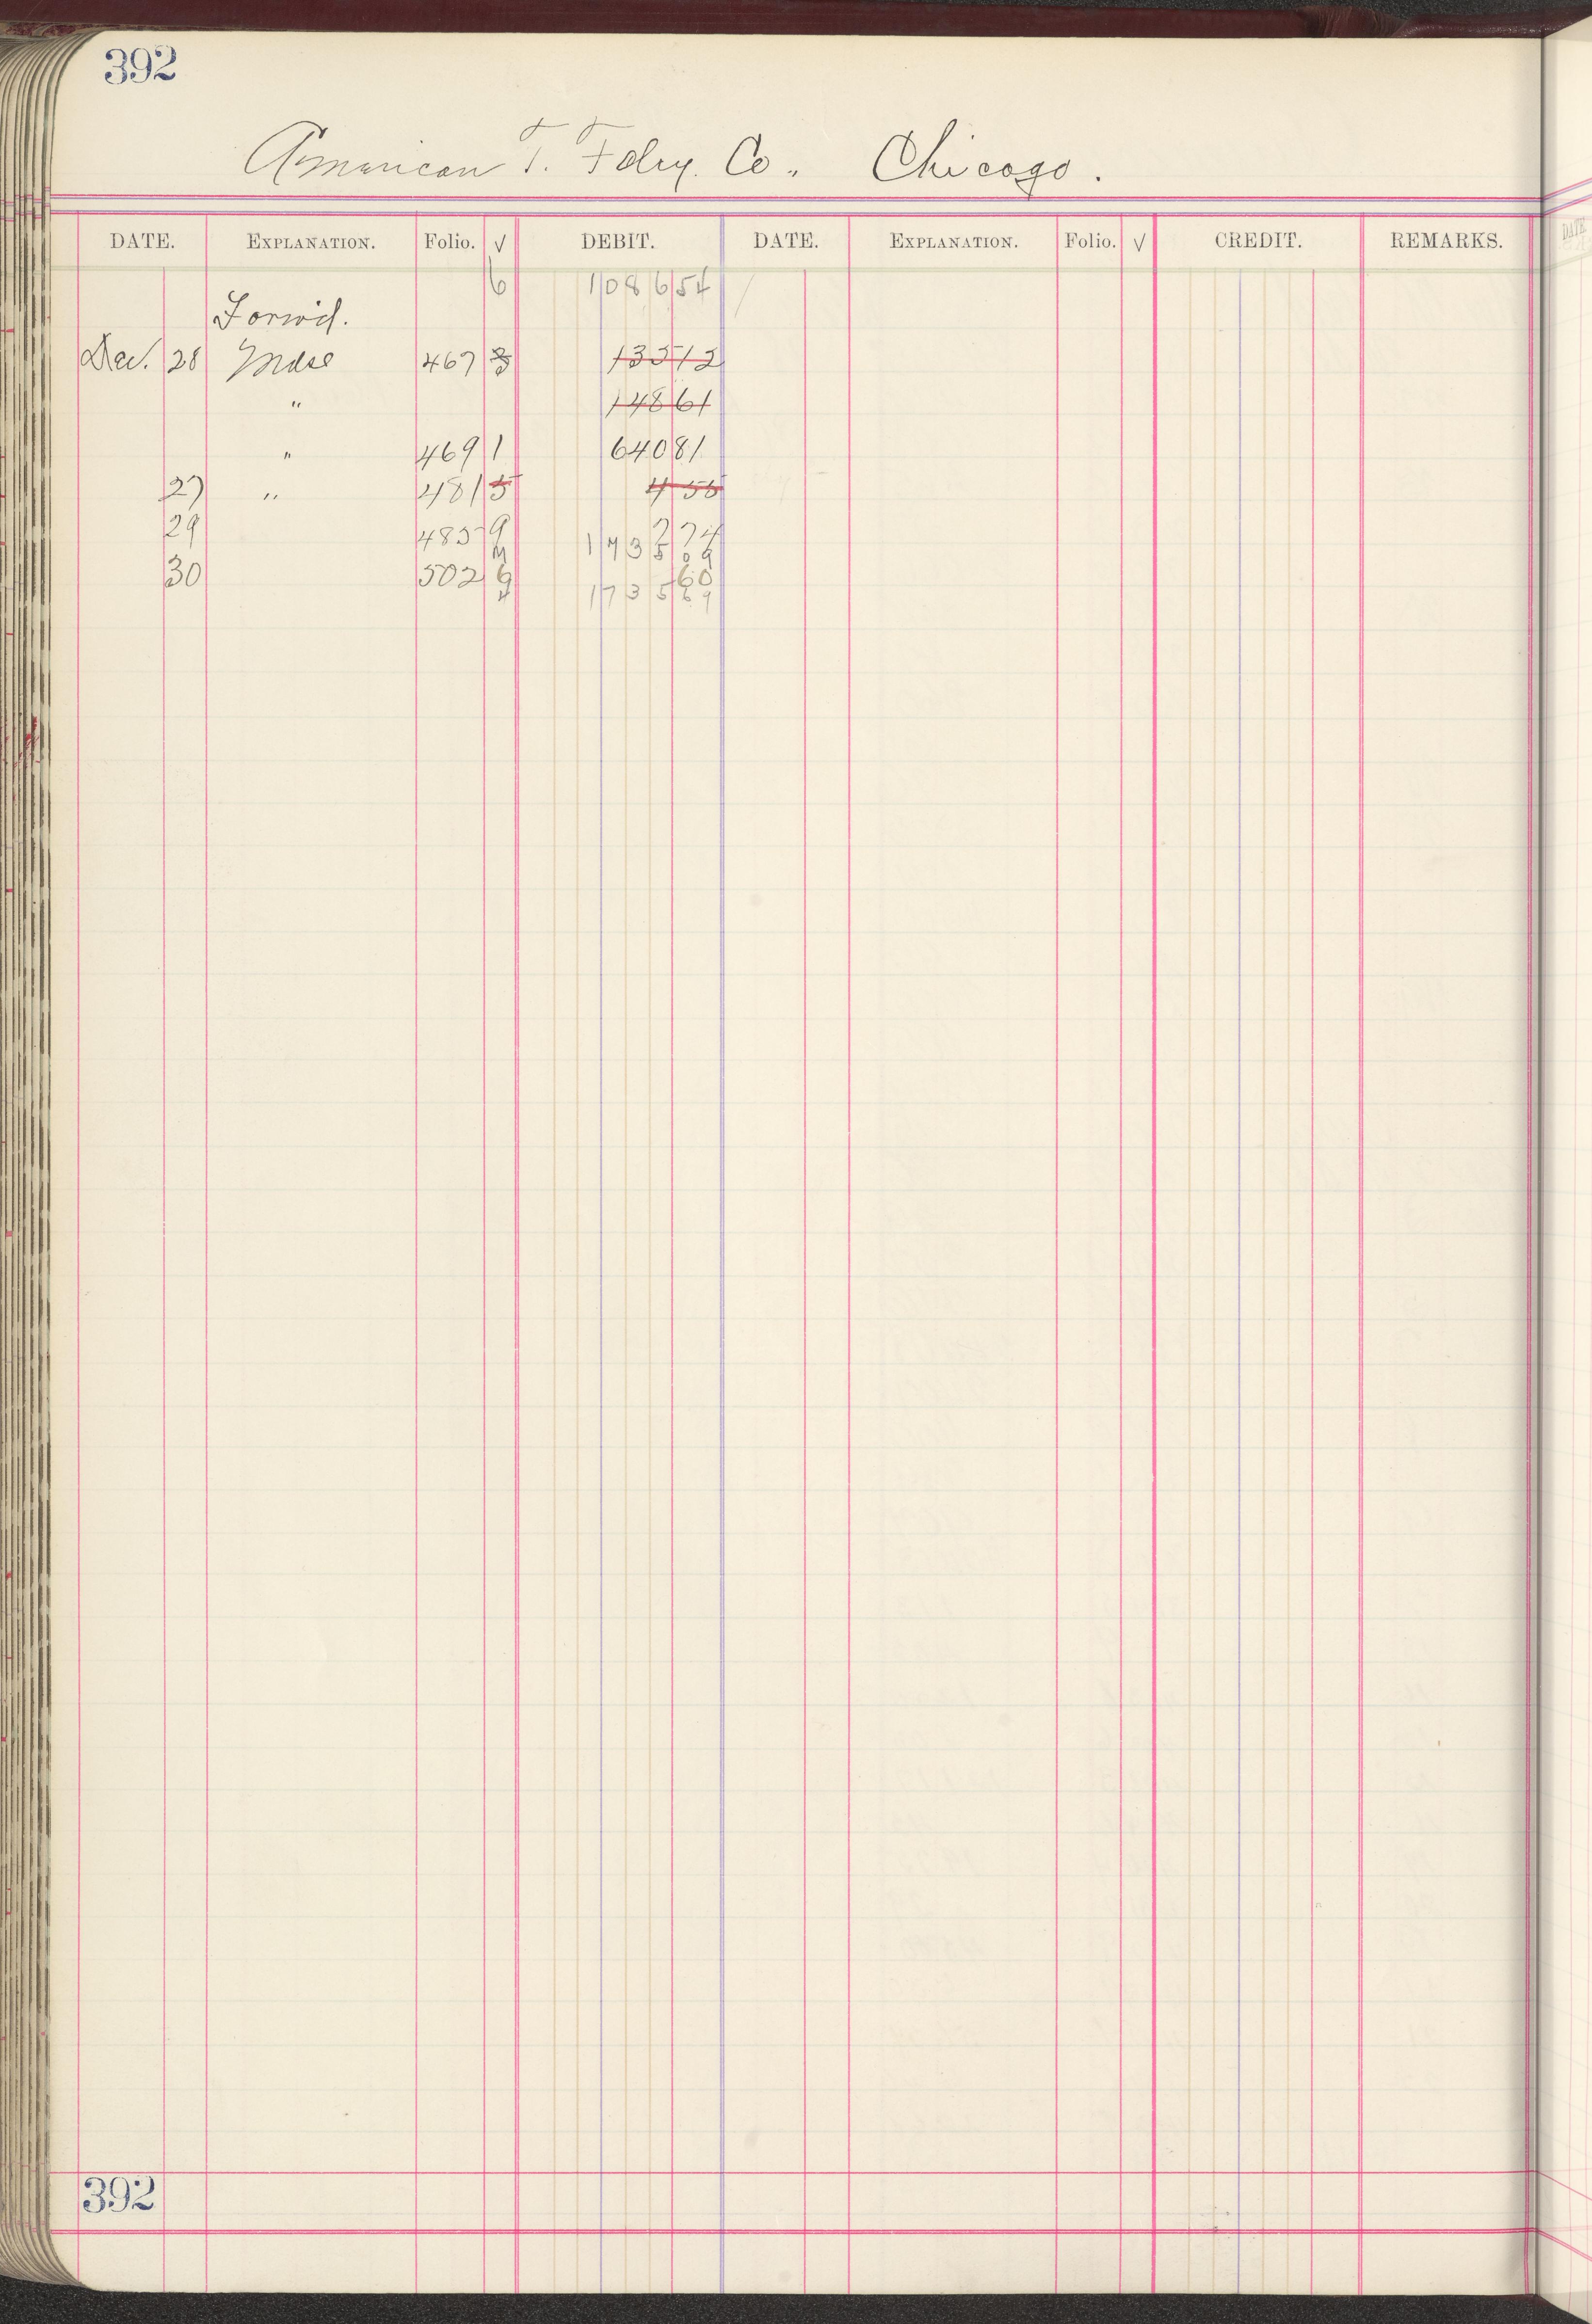 392
American T. Fdry. Co. Chicago.
DATE. EXPLANATION. Folio. √ DEBIT. DATE. EXPLANATION. Folio. √ CREDIT. REMARKS.
6 1086 54
Forw'd.
Dec. 28 Mdse 467 3 135 12
" 148 61
" 469 1 640 81
27 " 481 5 4 55
29 485 9 7 74
1735 09
30 502 6 60
1735 69
392